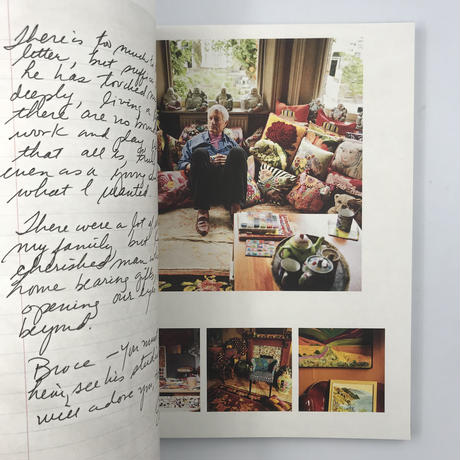 There is too much
letter, but
he has touched
deeply, living a
there are no
work and play
that all is
even as a young
what I wanted.
There were a lot of
my family, but
cherished man
home bearing gifts
opening our eyes
beyond.
Bruce - You must
here, see his
will adore you